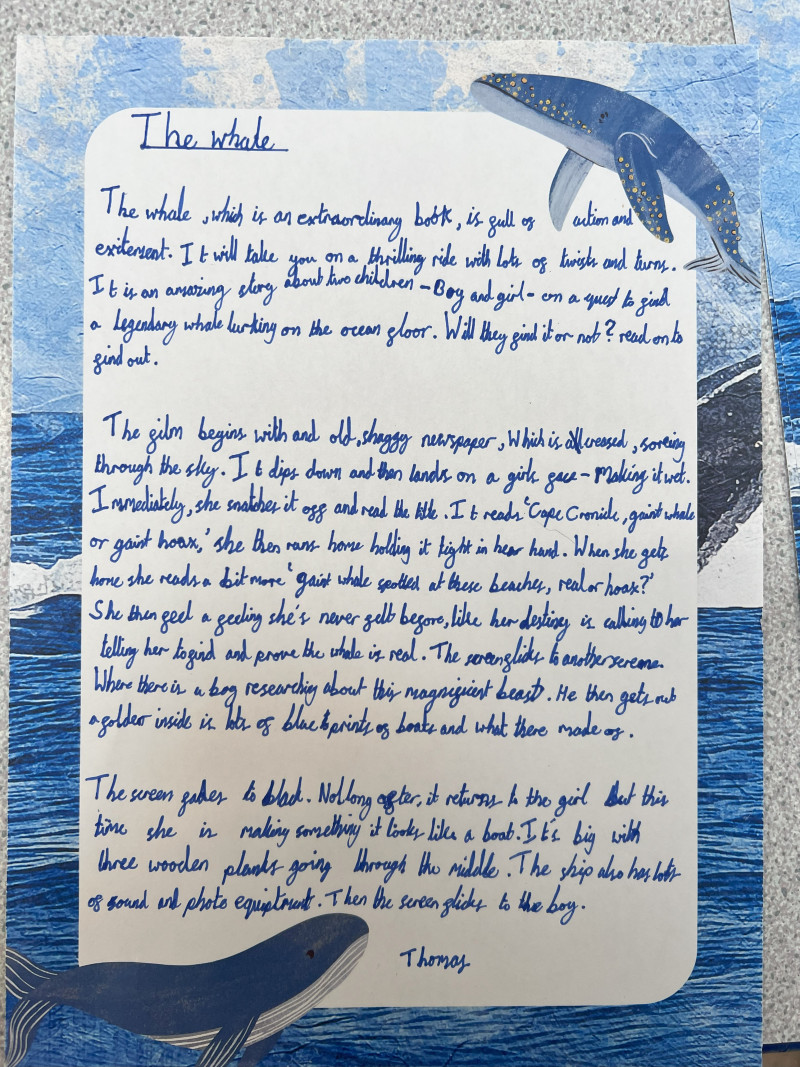 The whale
The whale, which is an extraordinary book, is full of action and
exitement. It will take you on a thrilling ride with lots of twists and turns.
It is an amazing story about two children - Boy and girl - on a quest to find
a Legendary whale lurking on the ocean floor. Will they find it or not? read on to
find out.
The film begins with and old, shaggy newspaper, Which is all creased, soreing
through the sky. It dips down and then lands on a girls face - making it wet.
Immediately, she snatches it off and read the title. It reads 'Cape Cronicle, gaint whale
or gaint hoax,' she then runs home holding it tight in hear hand. When she gets
home she reads a bit more 'gaint whale spotted at these beaches, real or hoax?'
She then feel a feeling she's never felt before, like her destiney is calling to her
telling her to find and prove the whale is real. The screen glides to another screene.
Where there is a boy researching about this magnificent beast. He then gets out
a folder inside is lots of blue prints of boats and what there made of.
The screen fades to black. Not long after, it returns to the girl but this
time she is making something it looks like a boat. It's big with
three wooden planks going through the middle. The ship also has lots
of sound and photo equiptment. Then the screen glides to the boy.
Thomas